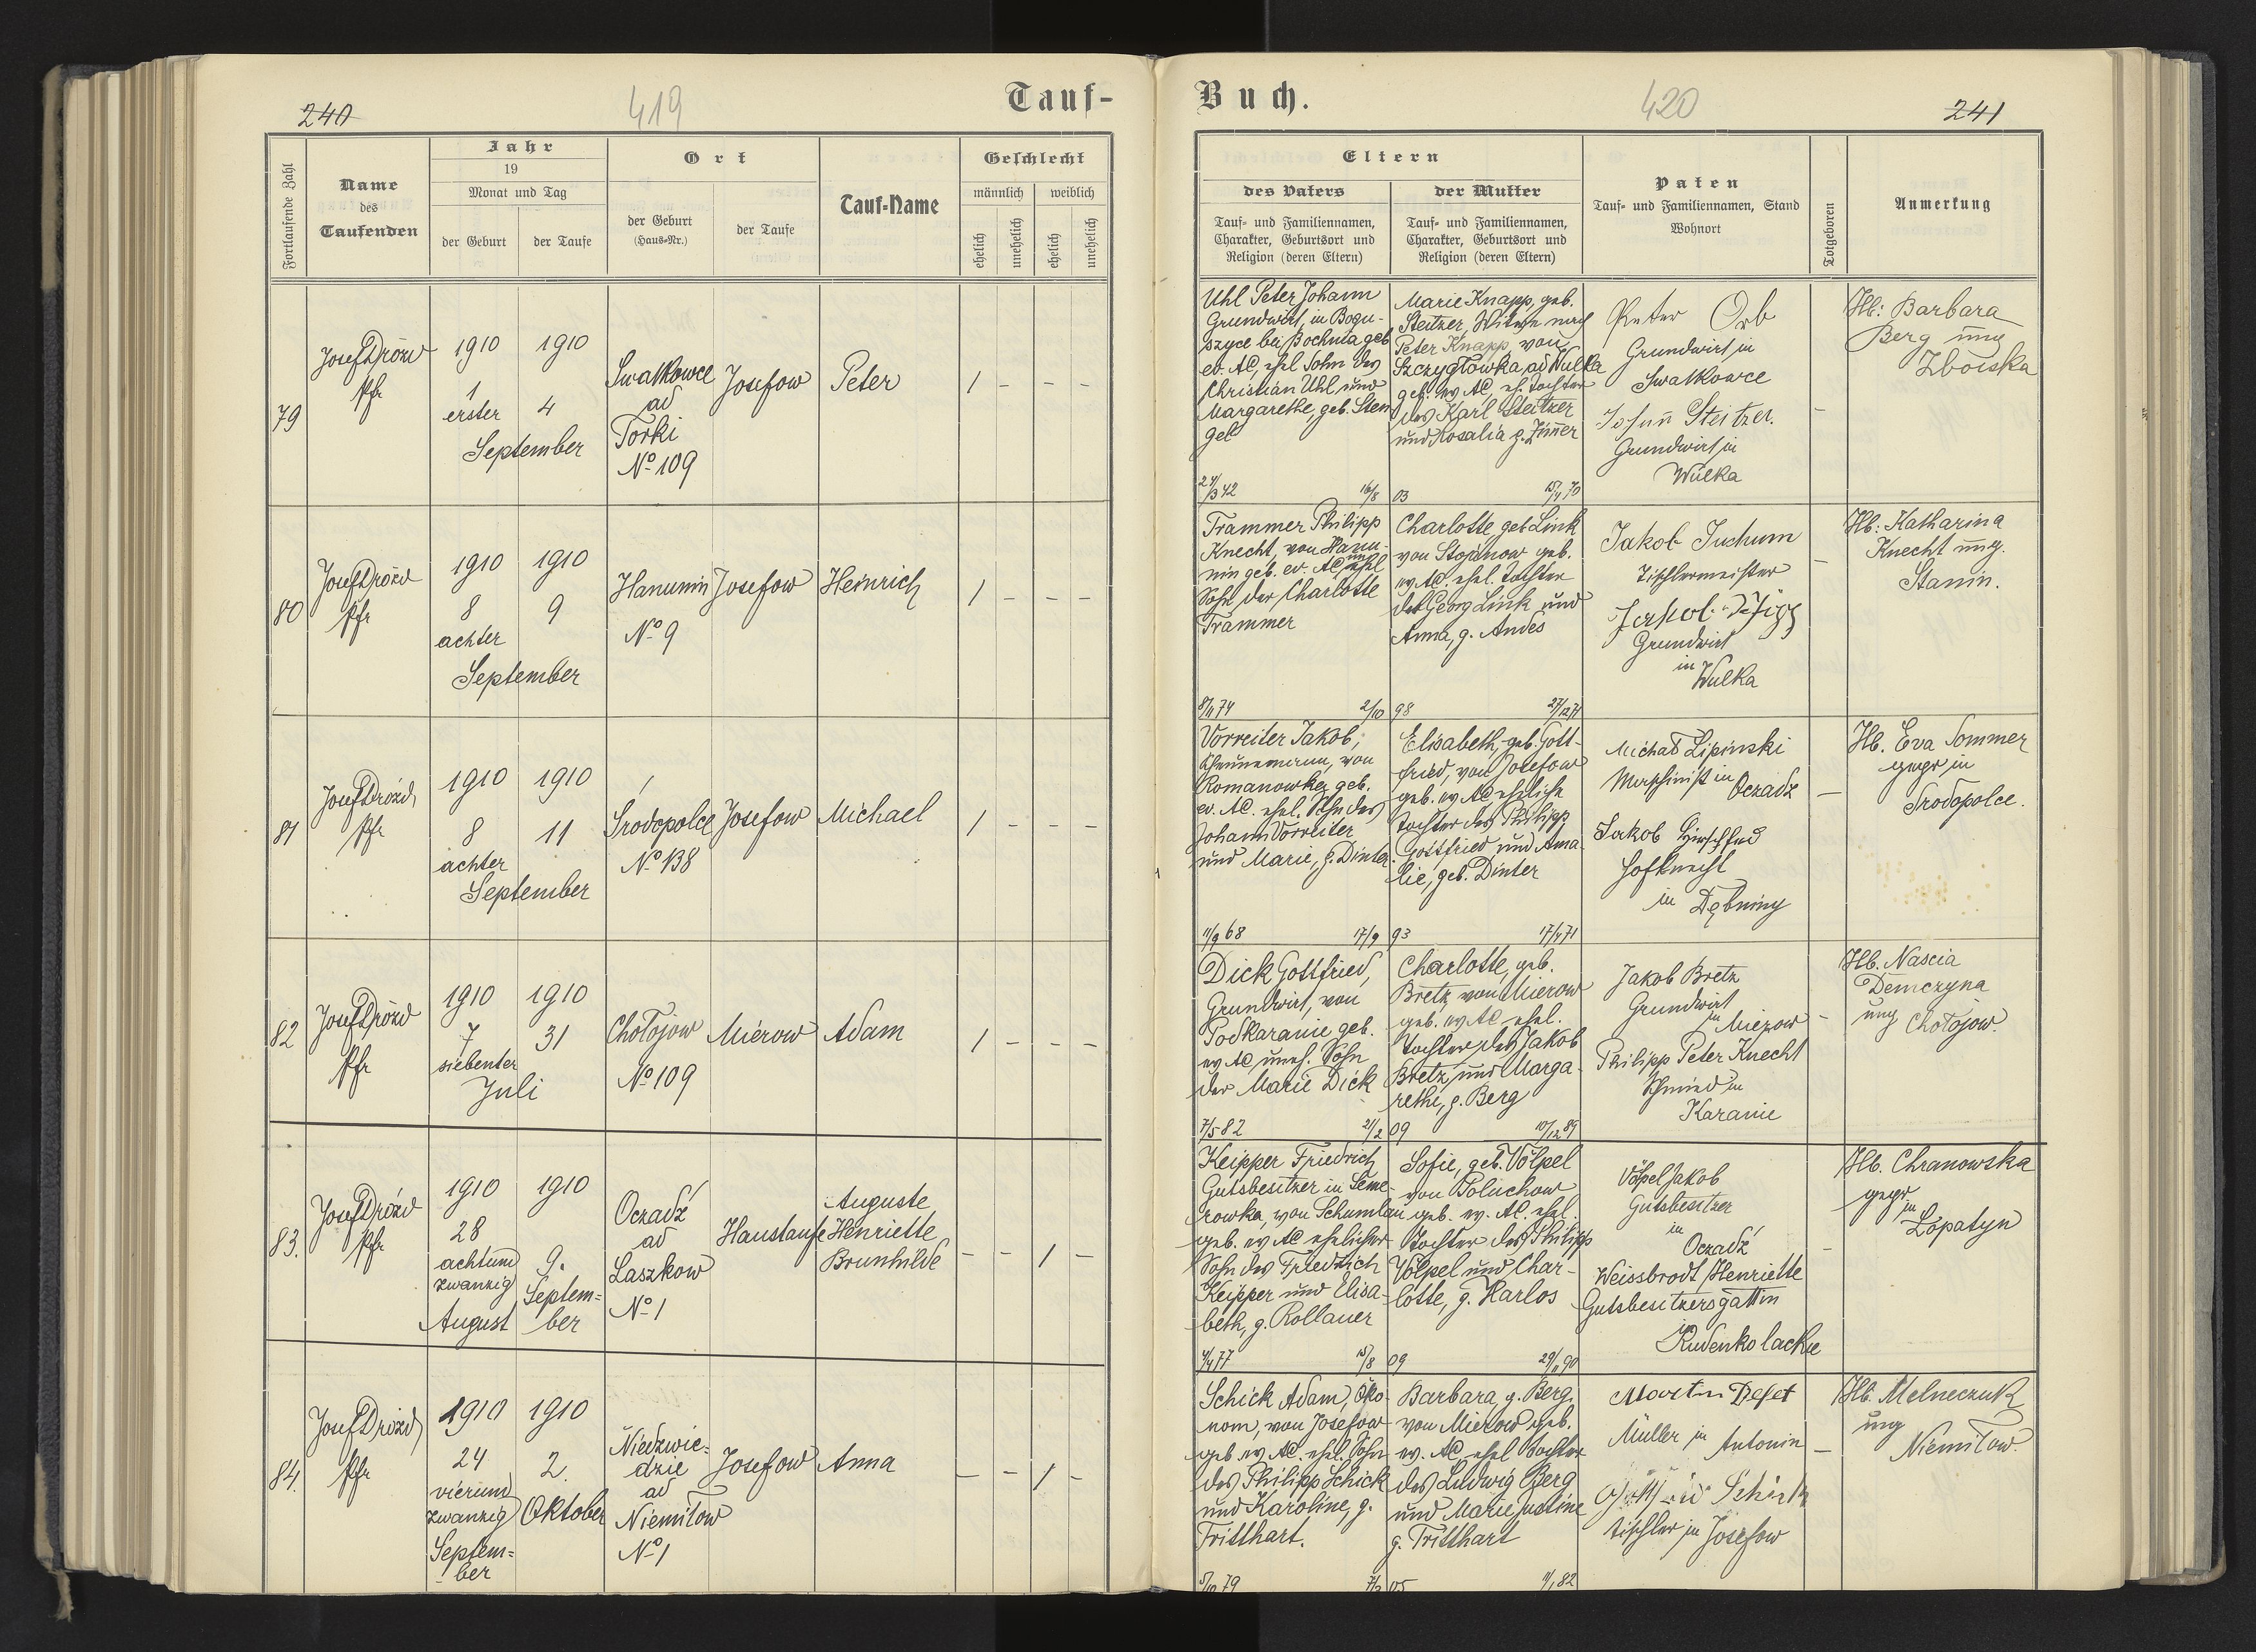 240
419
Tauf-
Buch.
420
241
Fortlaufende Zahl
Name
des
Taufenden
Jahr
19
Monat und Tag
der Geburt
der Taufe
Ort
der Geburt
(Haus-Nr.)
der Taufe
Tauf-Name
Geschlecht
männlich
weiblich
ehelich
unehelich
ehelich
unehelich
Eltern
des Vaters
Tauf- und Familiennamen,
Charakter, Geburtsort und
Religion (deren Eltern)
der Mutter
Tauf- und Familiennamen,
Charakter, Geburtsort und
Religion (deren Eltern)
Paten
Tauf- und Familiennamen, Stand
Wohnort
Totgeboren
Anmerkung
79
Josef Drózd
Pfr
1910
1
erster
1910
4
September
Swatkowce
ad
Torki
No 109
Josefow
Peter
/ - - -
Uhl Peter Johann
Grundwirt, in Bogu-
szyce bei Bochnia geb
ev. AC, ehel Sohn des
Christian Uhl und
Margarethe, geb. Sten
gel
24/3 42
16/8 03
Marie Knapp, geb.
Steitzer, Witwe nach
Peter Knapp, von
Szczygłowka ad Wulka
geb. ev AC, eh. Tochter
des Karl Steitzer
und Rosalia g. Zimer
15/4 70
Peter Orb
Grundwirt in
Swatkowce
Johann Steitzer.
Grundwirt in
Wulka
-
Hb: Barbara
Berg ung
Zboiska
80
Josef Drózd
Pfr
1910
8
achter
1910
9
September
Hanunin
No 9
Josefow
Heinrich
/ - - -
Trammer Philipp
Knecht, von Hanu-
nin geb. ev. AC unehel
Sohn der Charlotte
Trammer
8/11 74
2/10 98
Charlotte, geb Link
von Stojanow geb.
ev AC. ehel. Tochter
des Georg Link und
Anna, g. Andes
27/12 71
Jakob Juchum
Tischlermeister
Jakob
Grundwirt
in
Wulka
-
Hb: Katharina
Knecht ung.
Stanin.
81
Josef Drózd
Pfr
1910
8
achter
1910
11
September
Srodopolce
No 138
Josefow
Michael
/ - - -
Vorreiter Jakob,
von
Romanowka geb.
ev. AC. ehel. Sohn des
Johann Vorreiter
und Marie, g. Dinter
11/9 68
17/9 93
Elisabeth, geb. Gott-
fried, von Josefow
geb. ev AC eheliche
Tochter des Philipp
Gottfried und Ama-
lie, geb. Dinter
17/4 71
Michał Lipinski
Maschinist in Oczadz
Jakob
Hofknecht
in Dębniny
-
Hb. Eva Sommer
gepr in
Srodopolce.
82
Josef Drózd
Pfr
1910
7
siebenter
1910
31
Juli
Chołojow
No 109
Mierow
Adam
/ - - -
Dick Gottfried,
Grundwirt, von
Podkaranie geb.
ev AC uneh. Sohn
der Marie Dick
7/5 82
21/2 09
Charlotte, geb.
Bretz von Mierow
geb. ev AC ehel.
Tochter des Jakob
Bretz und Marga-
rethe, g. Berg
10/12 89
Jakob Bretz
Grundwirt
in Mierow
Philipp Peter Knecht
Schmied in
Karanie
-
Hb. Nascia
Demczyna
ung Chołojow.
83.
Josef Drózd
Pfr
1910
28
achtund
zwanzig
August
1910
9.
Septem=
ber
Oczadź
ad
Laszkow
No 1
Haustaufe
Auguste
Henriette
Brunhilde
- - / -
Keipper Friedrich
Gutsbesitzer in Seme-
rowka, von Schumlau
geb. ev AC ehelicher
Sohn des Friedrich
Keipper und Elisa-
beth, g. Rollauer
4/4 77
15/8 09
Sofie, geb. Völpel
von Poluchow
geb. ev. AC. ehel.
Tochter des Philipp
Völpel und Char-
lotte, g. Karlos
Völpel Jakob
Gutsbesitzer
in
Oczadź
Weissbrodt Henriette
Gutsbesitzersgattin
in
Rudenko lackie
-
Hb. Chranowska
gepr
in
Łopatyn
84.
Josef Drózd
Pfr
1910
24
vierund
zwanzig
Septem=
ber
1910
2.
Oktober
Niedzwie=
dzie
ad
Niemiłow
No 1
Josefow
Anna
- - / -
Schick Adam, Öko-
nom, von Josefow
geb ev AC. ehel. Sohn
des Philipp Schick
und Karoline, g.
Tritthart.
5/10 79
7/2 05
Barbara, g. Berg.
von Mierow geb.
ev. AC ehel Tochter
des Ludwig Berg
und Marie Justine
g. Tritthart
1/1 82
Müller in Antonin
Schick
Tischler in Josefow
-
Hb. Melneczuk
ung
Niemiłow.